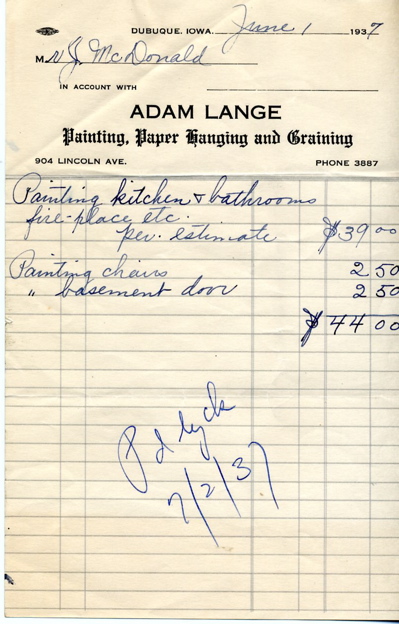 DUBUQUE, IOWA, June 1 1937
Mr J. McDonald
IN ACCOUNT WITH
ADAM LANGE
Painting, Paper Hanging and Graining
904 LINCOLN AVE. PHONE 3887
Painting kitchen & bathrooms
fire-place etc.
per. estimate $39 00
Painting chairs 2 50
" basement door 2 50
$44 00
Pd by ck
7/2/37